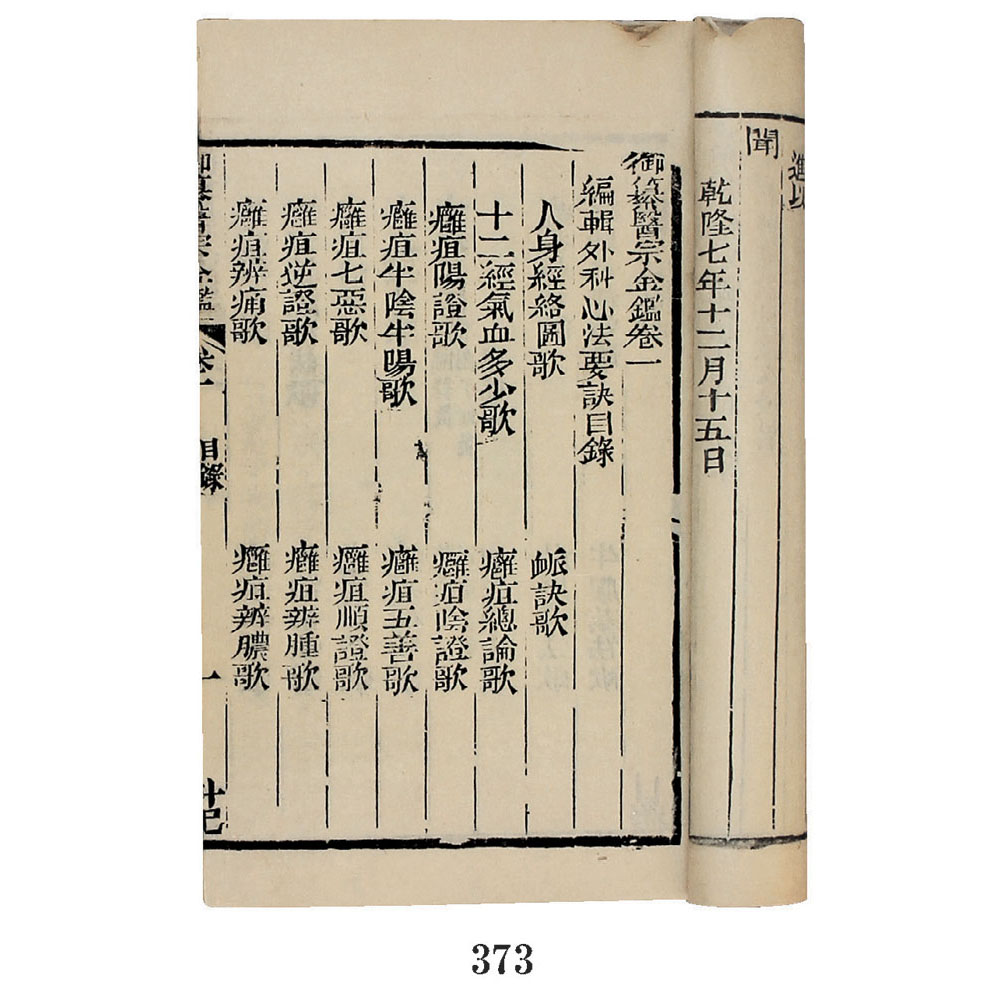 進以
聞
乾隆七年十二月十五日
御纂醫宗金鑑卷一
編輯外科心法要訣目錄
人身經絡圖歌 脈訣歌
十二經氣血多少歌 癰疽總論歌
癰疽陽證歌 癰疽陰證歌
癰疽半陰半陽歌 癰疽五善歌
癰疽七惡歌 癰疽順證歌
癰疽逆證歌 癰疽辨腫歌
癰疽辨痛歌 癰疽辨膿歌
御纂醫宗金鑑 卷一 目錄 一
373